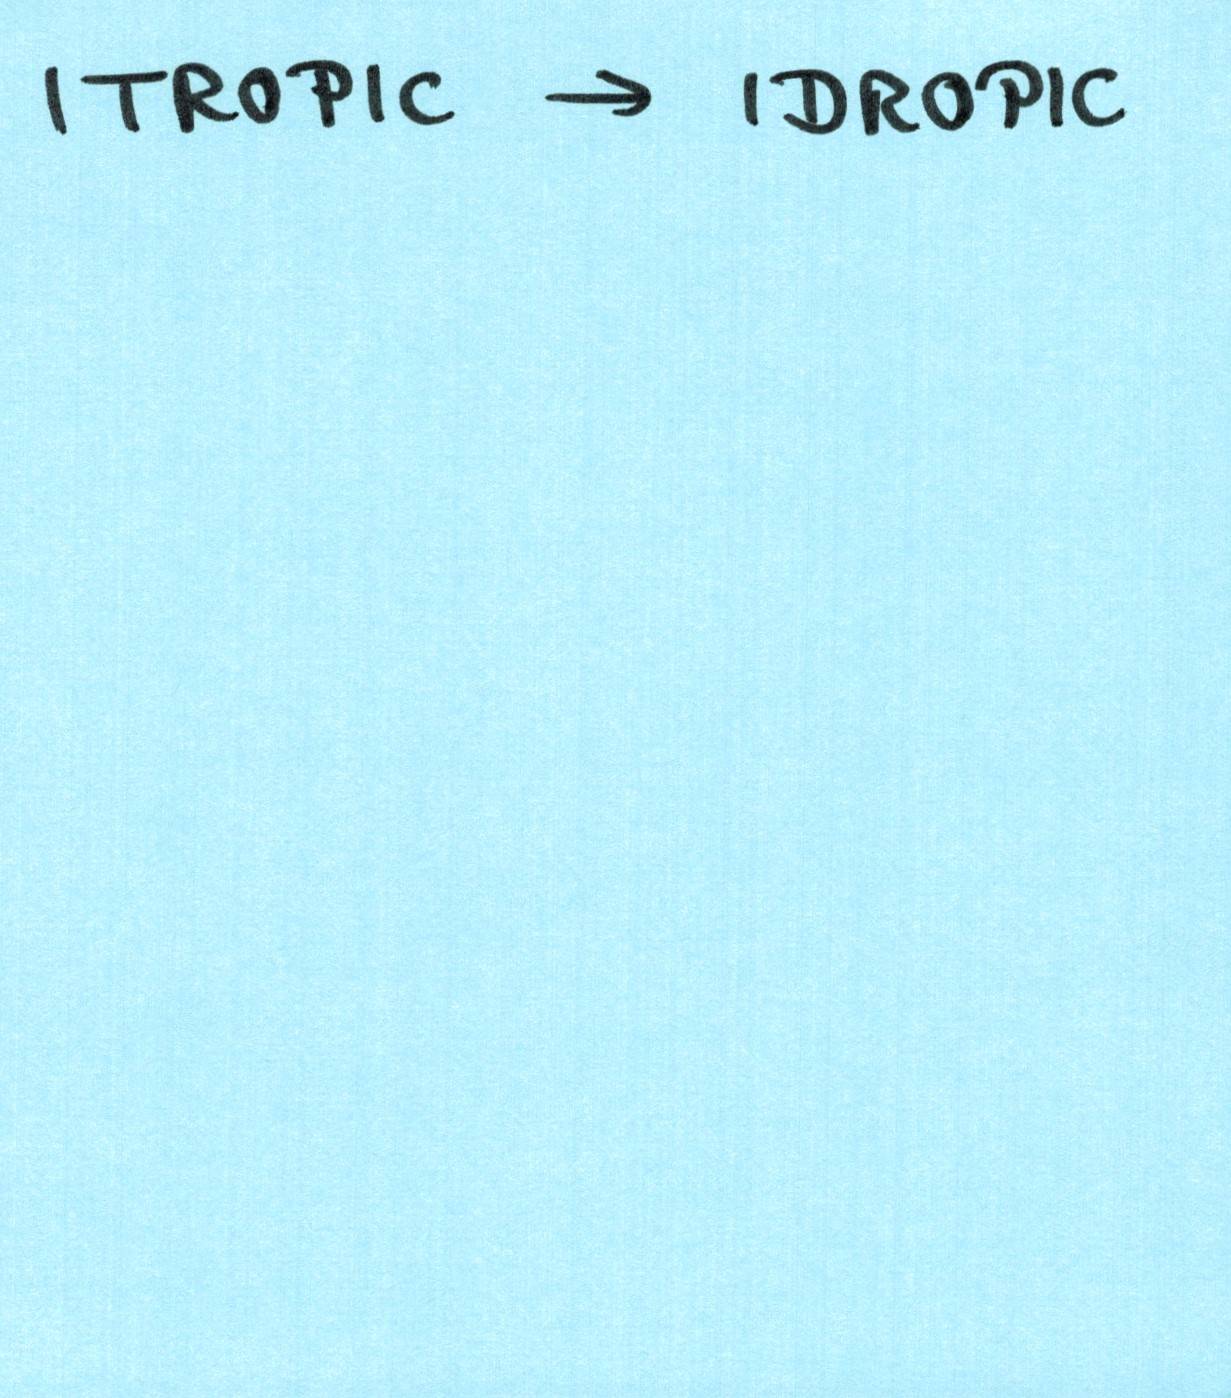 ITROPIC → IDROPIC